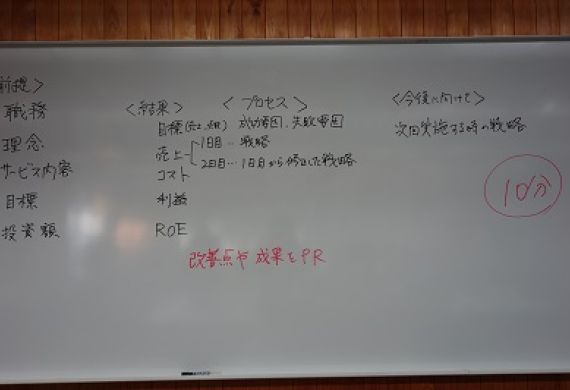 前提>
職務
理念
サービス内容
目標
投資額
<結果>
目標(売上、利益)
売上
コスト
利益
ROE
<プロセス>
成功要因、失敗要因
1日目…戦略
2日目…1日目から修正した戦略
<今後に向けて>
次回実施する時の戦略
10分
改善点や成果をPR